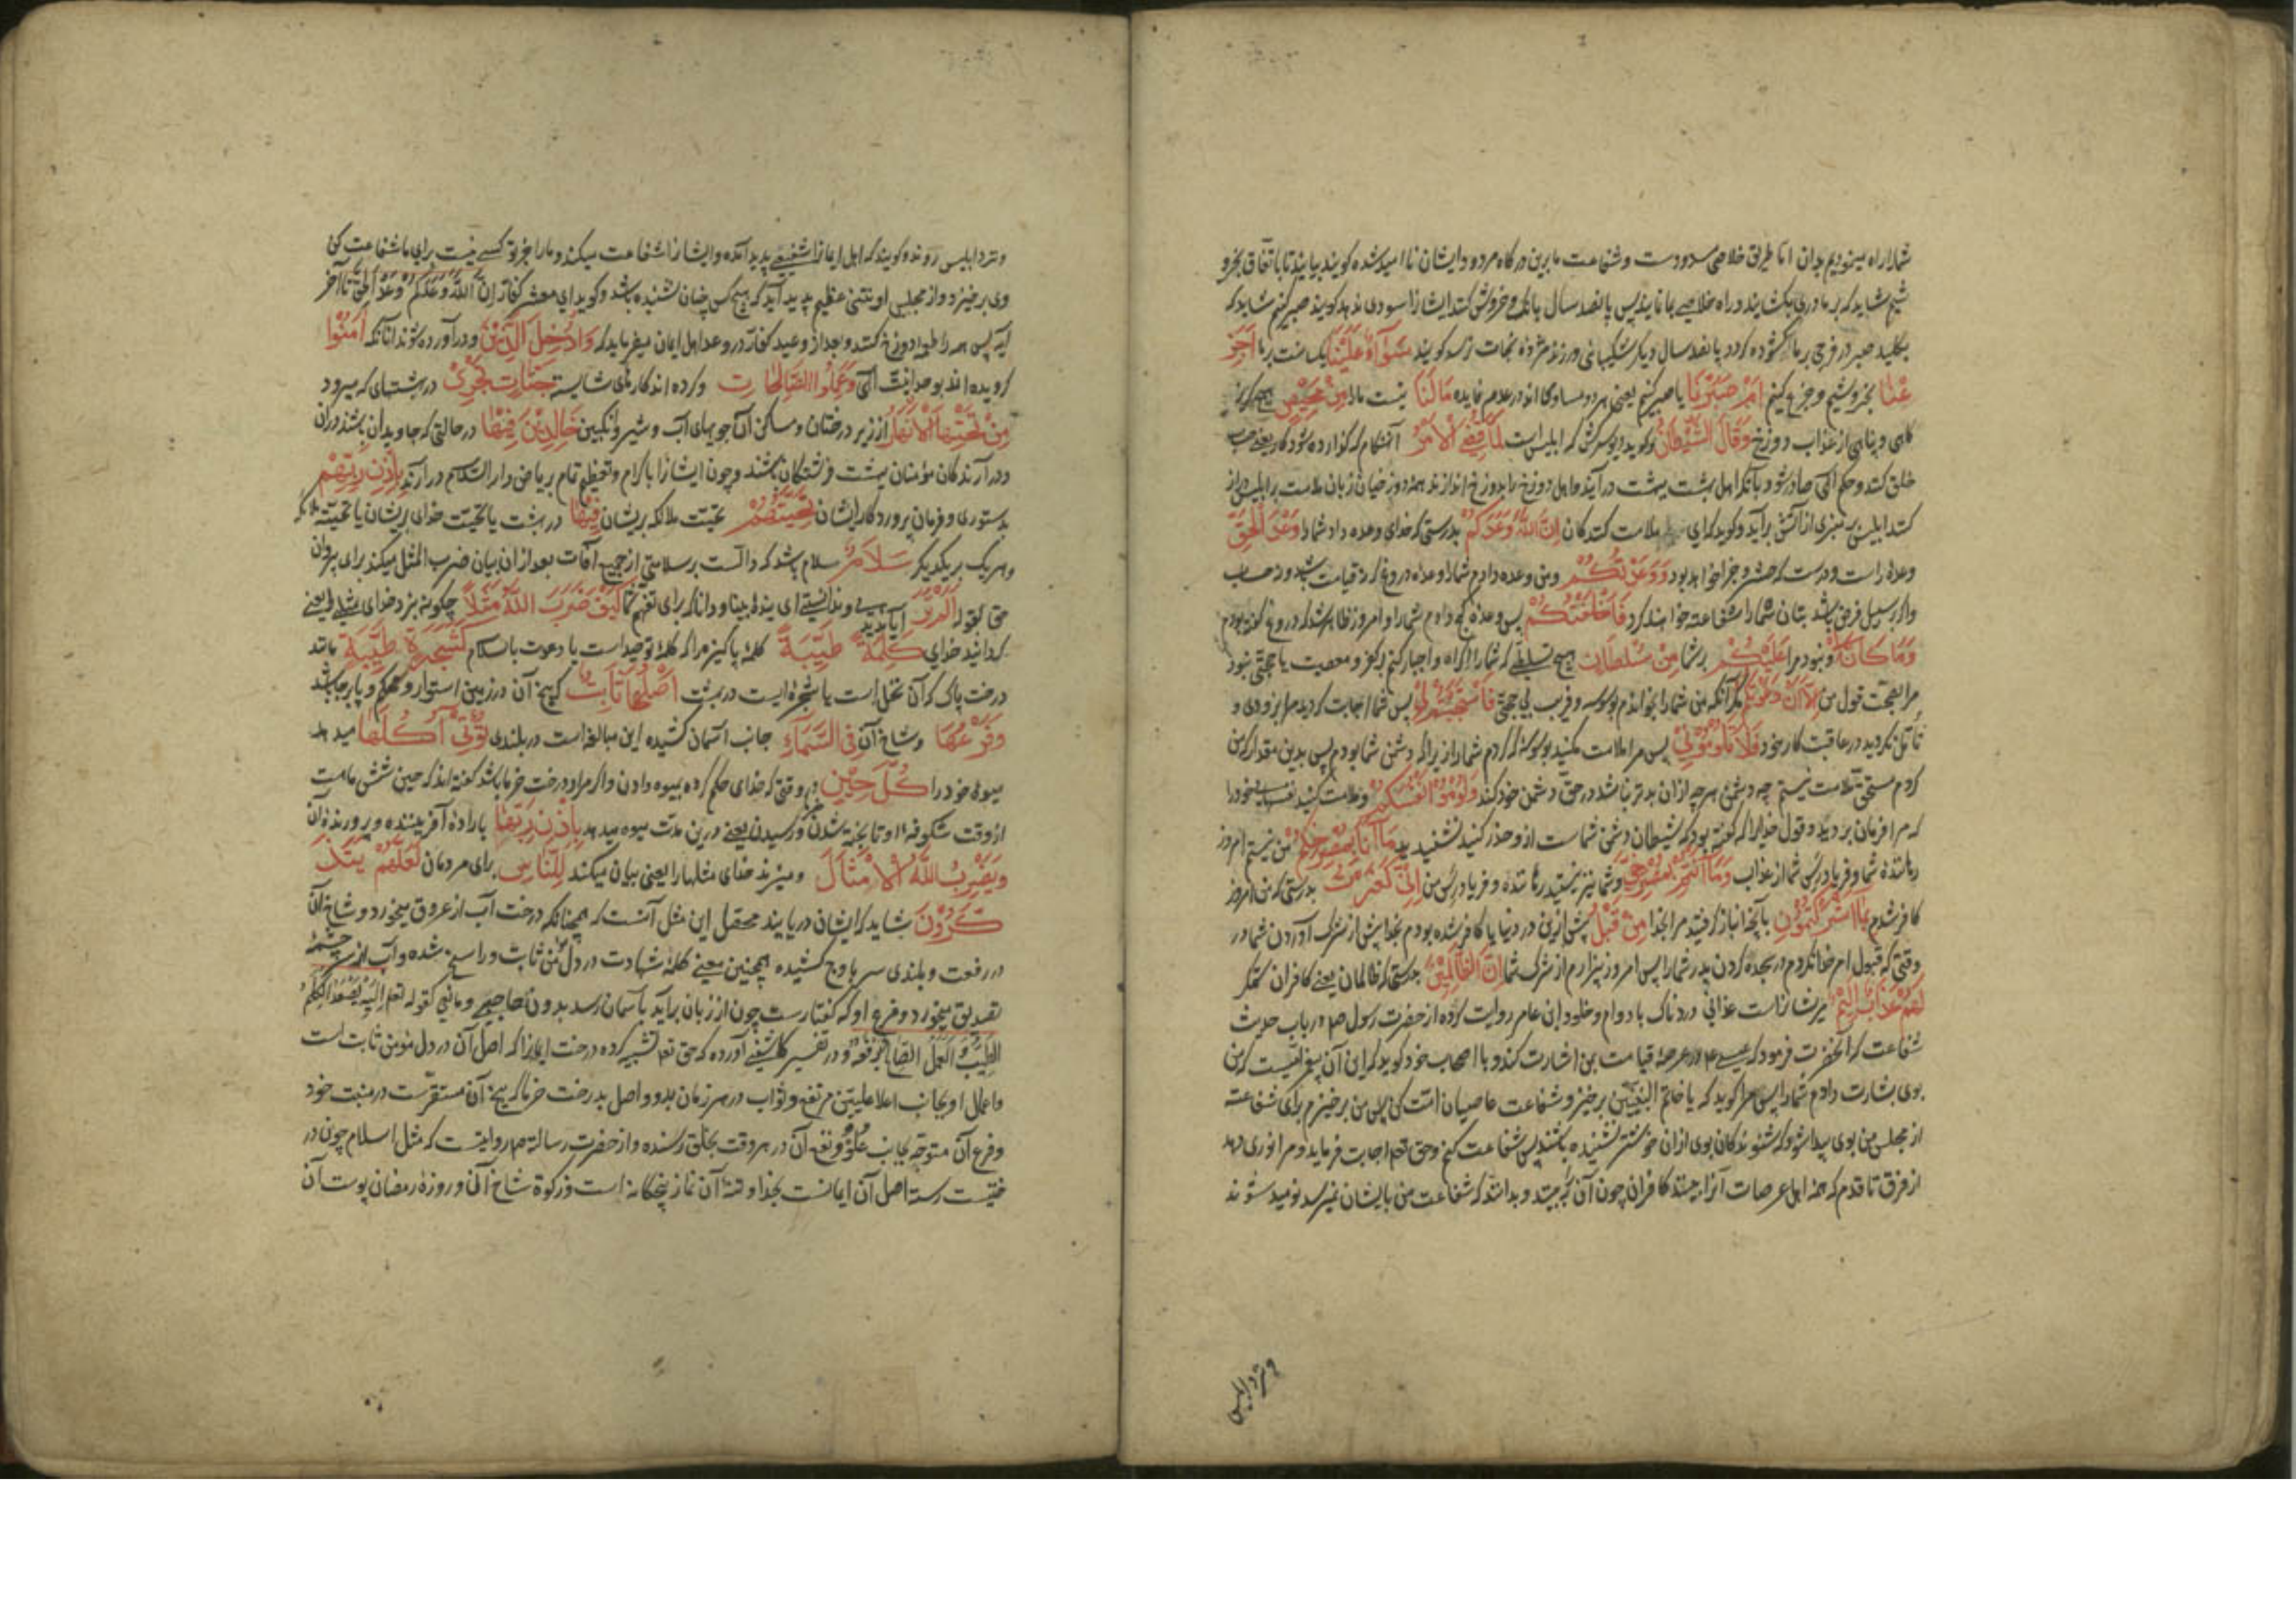 شما را راه مینمودیم بدان اما طریق خلاصی مسدودست و شفاعت ما برین درگاه مردود ایشان ناامید شده کویند بیایید تا باتفاق بخرو
شیم شاید که بر ما دری بکشایند و راه خلاصی بما نمایند پس پانصد سال بانک و خروش کنند ایشانرا سودی ندهد کویند صبر کنیم شاید که
بکلید صبر در فرجی بر ما کشوده کردد پانصد سال دیکر شکیبائی ورزند مژدهٔ نجات نرسد کویند سَوَآءٌ عَلَیْنَا یکسانست بر ما اَجَزِ
عْنَا بخروشیم و جزع کنیم اَمْ صَبَرْنَا یا صبر کنیم یعنی هر دو مساوی‌اند در عدم فایده مَالَنَا نیست ما را مِنْ مَحِیصٍ هیچ
کاهی و پناهی از عذاب دوزخ وَقَالَ الشَّیْطَانُ و کوید دیو سرکش که ابلیس است لَمَّا قُضِیَ الْاَمْرُ آنهنکام که کزارده شود کار یعنی حساب
خلق کنند و حکم الهی صادر شود بآنکه اهل بهشت ببهشت درآیند و اهل دوزخ را بدوزخ اندازند همه دوزخیان زبان ملامت بر ابلیس دراز
کنند ابلیس بر منبری از آتش برآید و کوید که ای ملامت کنندکان اِنَّ اللّٰهَ وَعَدَکُمْ بدرستی که خدای وعده داد شما را وَعْدَ الْحَقِّ
وعدهٔ راست و درست که حشر و جزا خواهد بود وَوَعَدْتُکُمْ و من وعده دادم شما را وعده دروغ که نه قیامت باشد و نه حساب
و اکر بر سبیل فرض باشد بتان شما را شفاعت خواهند کرد فَاَخْلَفْتُکُمْ پس وعده کج دادم شما را و امروز ظاهر شد که دروغ کفته بودم
وَمَا کَانَ لِیَ و نبود مرا عَلَیْکُمْ بر شما مِنْ سُلْطَانٍ هیچ تسلطی که شما را اکراه و اجبار کنم بر کفر و معصیت یا حجتی نبود
مرا بصحت قول من اِلَّا اَنْ دَعَوْتُکُمْ مکر آنکه من شما را بخواندم بوسوسه و فریب بی حجتی فَاسْتَجَبْتُمْ لِی پس شما اجابت کردید مرا بزودی و
تأمل نکردید در عاقبت کار خود فَلَا تَلُومُونِی پس مرا ملامت مکنید بوسوسه که کردم شما را زیرا که دشمن شما بودم پس بدین مقدار که من
کردم مستحق ملامت نیستم چه دشمن هر چه ازان بدتر نباشد در حق دشمن خود کند وَلُومُوا اَنْفُسَکُمْ و ملامت کنید نفسهای خود را
که مرا فرمان بردید و قول خدایرا که کفته بود که شیطان دشمن شماست ازو حذر کنید نشنیدید مَآ اَنَا بِمُصْرِخِکُمْ من نیستم امروز
رهاننده شما و فریادرس شما از عذاب وَمَآ اَنْتُمْ بِمُصْرِخِیَّ و شما نیز نیستید رهاننده و فریادرس من اِنِّی کَفَرْتُ بدرستی که من امروز
کافر شدم بِمَآ اَشْرَکْتُمُونِ بآنچه انباز کرفتید مرا بخدا مِنْ قَبْلُ پیش ازین در دنیا یا کافر شده بودم بخدا پیش از شرک آوردن شما در
وقتی که قبول امر خدا نکردم در سجده کردن پدر شما را پس امروز بیزارم از شرک شما اِنَّ الظَّالِمِینَ بدرستی که ظالمان یعنی کافران ستمکر
لَهُمْ عَذَابٌ اَلِیمٌ مر ایشانراست عذابی دردناک با دوام و خلود ابن عامر روایت کرده از حضرت رسول صم در باب حدیث
شفاعت که آنحضرت فرمود که عیسی عم در عرصهٔ قیامت بمن اشارت کند و با اصحاب خود کوید که این آن پیغمبریست که من
بوی بشارت دادم شما را پس مرا کوید که یا خاتم النبیین برخیز و شفاعت عاصیان امت کن پس من برخیزم برای شفاعت
از مجلس من بوی پیدا شود که شنوندکان بوی ازان خوشتر نشنیده باشند پس شفاعت کنم و حق تعم اجابت فرماید و مرا نوری دهد
از فرق تا قدم که همه اهل عرصات آنرا بینند کافران چون آن ببینند و بدانند که شفاعت من بایشان نمیرسد نومید شوند
و نزد ابلیس
و نزد ابلیس روند و کویند که اهل ایمانرا شفیعی پدید آمده و ایشانرا شفاعت میکند و ما را جز تو کسی نیست برای ما شفاعت کن
وی برخیزد و از مجلس او نتنی عظیم پدید آید که هیچ کس چنان نشنیده باشد و کوید ای معشر کفار اِنَّ اللّٰهَ وَعَدَکُمْ وَعْدَ الْحَقِّ تا آخر
آیه پس همه را طعمهٔ دوزخ کنند و بعد از وعید کفار در وعد اهل ایمان میفرماید که وَاُدْخِلَ الَّذِینَ و درآورده شوند آنانکه اٰمَنُوا
کرویده‌اند بوحدانیت الهی وَعَمِلُوا الصَّالِحَاتِ و کرده‌اند کارهای شایسته جَنَّاتٍ تَجْرِی در بهشتهای که میرود
مِنْ تَحْتِهَا الْاَنْهَارُ از زیر درختان و مساکن آن جویهای آب و شیر و انکبین خَالِدِینَ فِیهَا در حالتی که جاویدان باشند دران
و درآرندکان مؤمنان ببهشت فرشتکان باشند و چون ایشانرا باکرام و تعظیم تمام بریاض دار السلام درآرند بِاِذْنِ رَبِّهِمْ
بدستوری و فرمان پروردکار ایشان تَحِیَّتُهُمْ تحیت ملائکه بریشان فِیهَا در بهشت یا تحیت خدای بریشان یا تحیت ملائکه
و هر یک بریکدیکر سَلَامٌ سلام باشد که دالست بر سلامتی از جمیع آفات بعد از ان بیان ضرب المثل میکند برای بیان
حق بقوله اَلَمْ تَرَ آیا ندیدی و ندانستی ای بینندهٔ بینا و دانا که برای تفهم شما کَیْفَ ضَرَبَ اللّٰهُ مَثَلًا چکونه بزد خدای مثلی یعنی
کردانید خدای کَلِمَةً طَیِّبَةً کلمهٔ پاکیزه را که کلمهٔ توحیداست یا دعوت باسلام کَشَجَرَةٍ طَیِّبَةٍ مانند
درخت پاک که آن نخل است یا شجرهٔ ایست در بهشت اَصْلُهَا ثَابِتٌ که بیخ آن در زمین استوار و محکم و پابرجا باشد
وَفَرْعُهَا و شاخ آن فِی السَّمَآءِ جانب آسمان کشیده این مبالغه است در بلندی تُؤْتِیٓ اُکُلَهَا میدهد
میوهٔ خود را کُلَّ حِینٍ هر وقتی که خدای حکم کرده بمیوه دادن و اکر مراد درخت خرما باشد کفته‌اند که حین شش ماهست
از وقت شکوفهٔ او تا پخته شدن و رسیدن یعنی درین مدت میوه میدهد بِاِذْنِ رَبِّهَا بارادهٔ آفریننده و پرورندهٔ آن
وَیَضْرِبُ اللّٰهُ الْاَمْثَالَ و میزند خدای مثلها را یعنی بیان میکند لِلنَّاسِ برای مردمان لَعَلَّهُمْ یَتَذَ
کَّرُونَ شاید که ایشان دریابند محصل این مثل آنست که همچنانکه درخت آب از عروق میخورد و شاخ آن
در رفعت و بلندی سر باوج کشیده همچنین معنی کلمهٔ شهادت در دل مؤمن ثابت و راسخ شده و آب از سرچشمهٔ
تصدیق میخورد و فرع او که کفتارست چون از زبان برآید بآسمان رسد بدون حاجبی و مانعی کقوله تعم اِلَیْهِ یَصْعَدُ الْکَلِمُ
الطَّیِّبُ وَالْعَمَلُ الصَّالِحُ یَرْفَعُهُ و در تفسیر کاشفی آورده که حق تعم تشبیه کرده درخت ایمانرا که اصل آن در دل مؤمن ثابت است
و اعمال او بجانب اعلا علیین مرتفع و ثواب در هر زمان بدو واصل بدرخت خرما که بیخ آن مستقرّست در منبت خود
و فرع آن متوجه بجانب عُلُوّ و نفع آن در هر وقت بخلق رسنده و از حضرت رسالة صم روایتست که مثل اسلام چون در
ختیست رسته اصل آن ایمانست بخدا و تنهٔ آن نماز پنجکانه است و زکوة شاخ آن و روزهٔ رمضان پوست آن